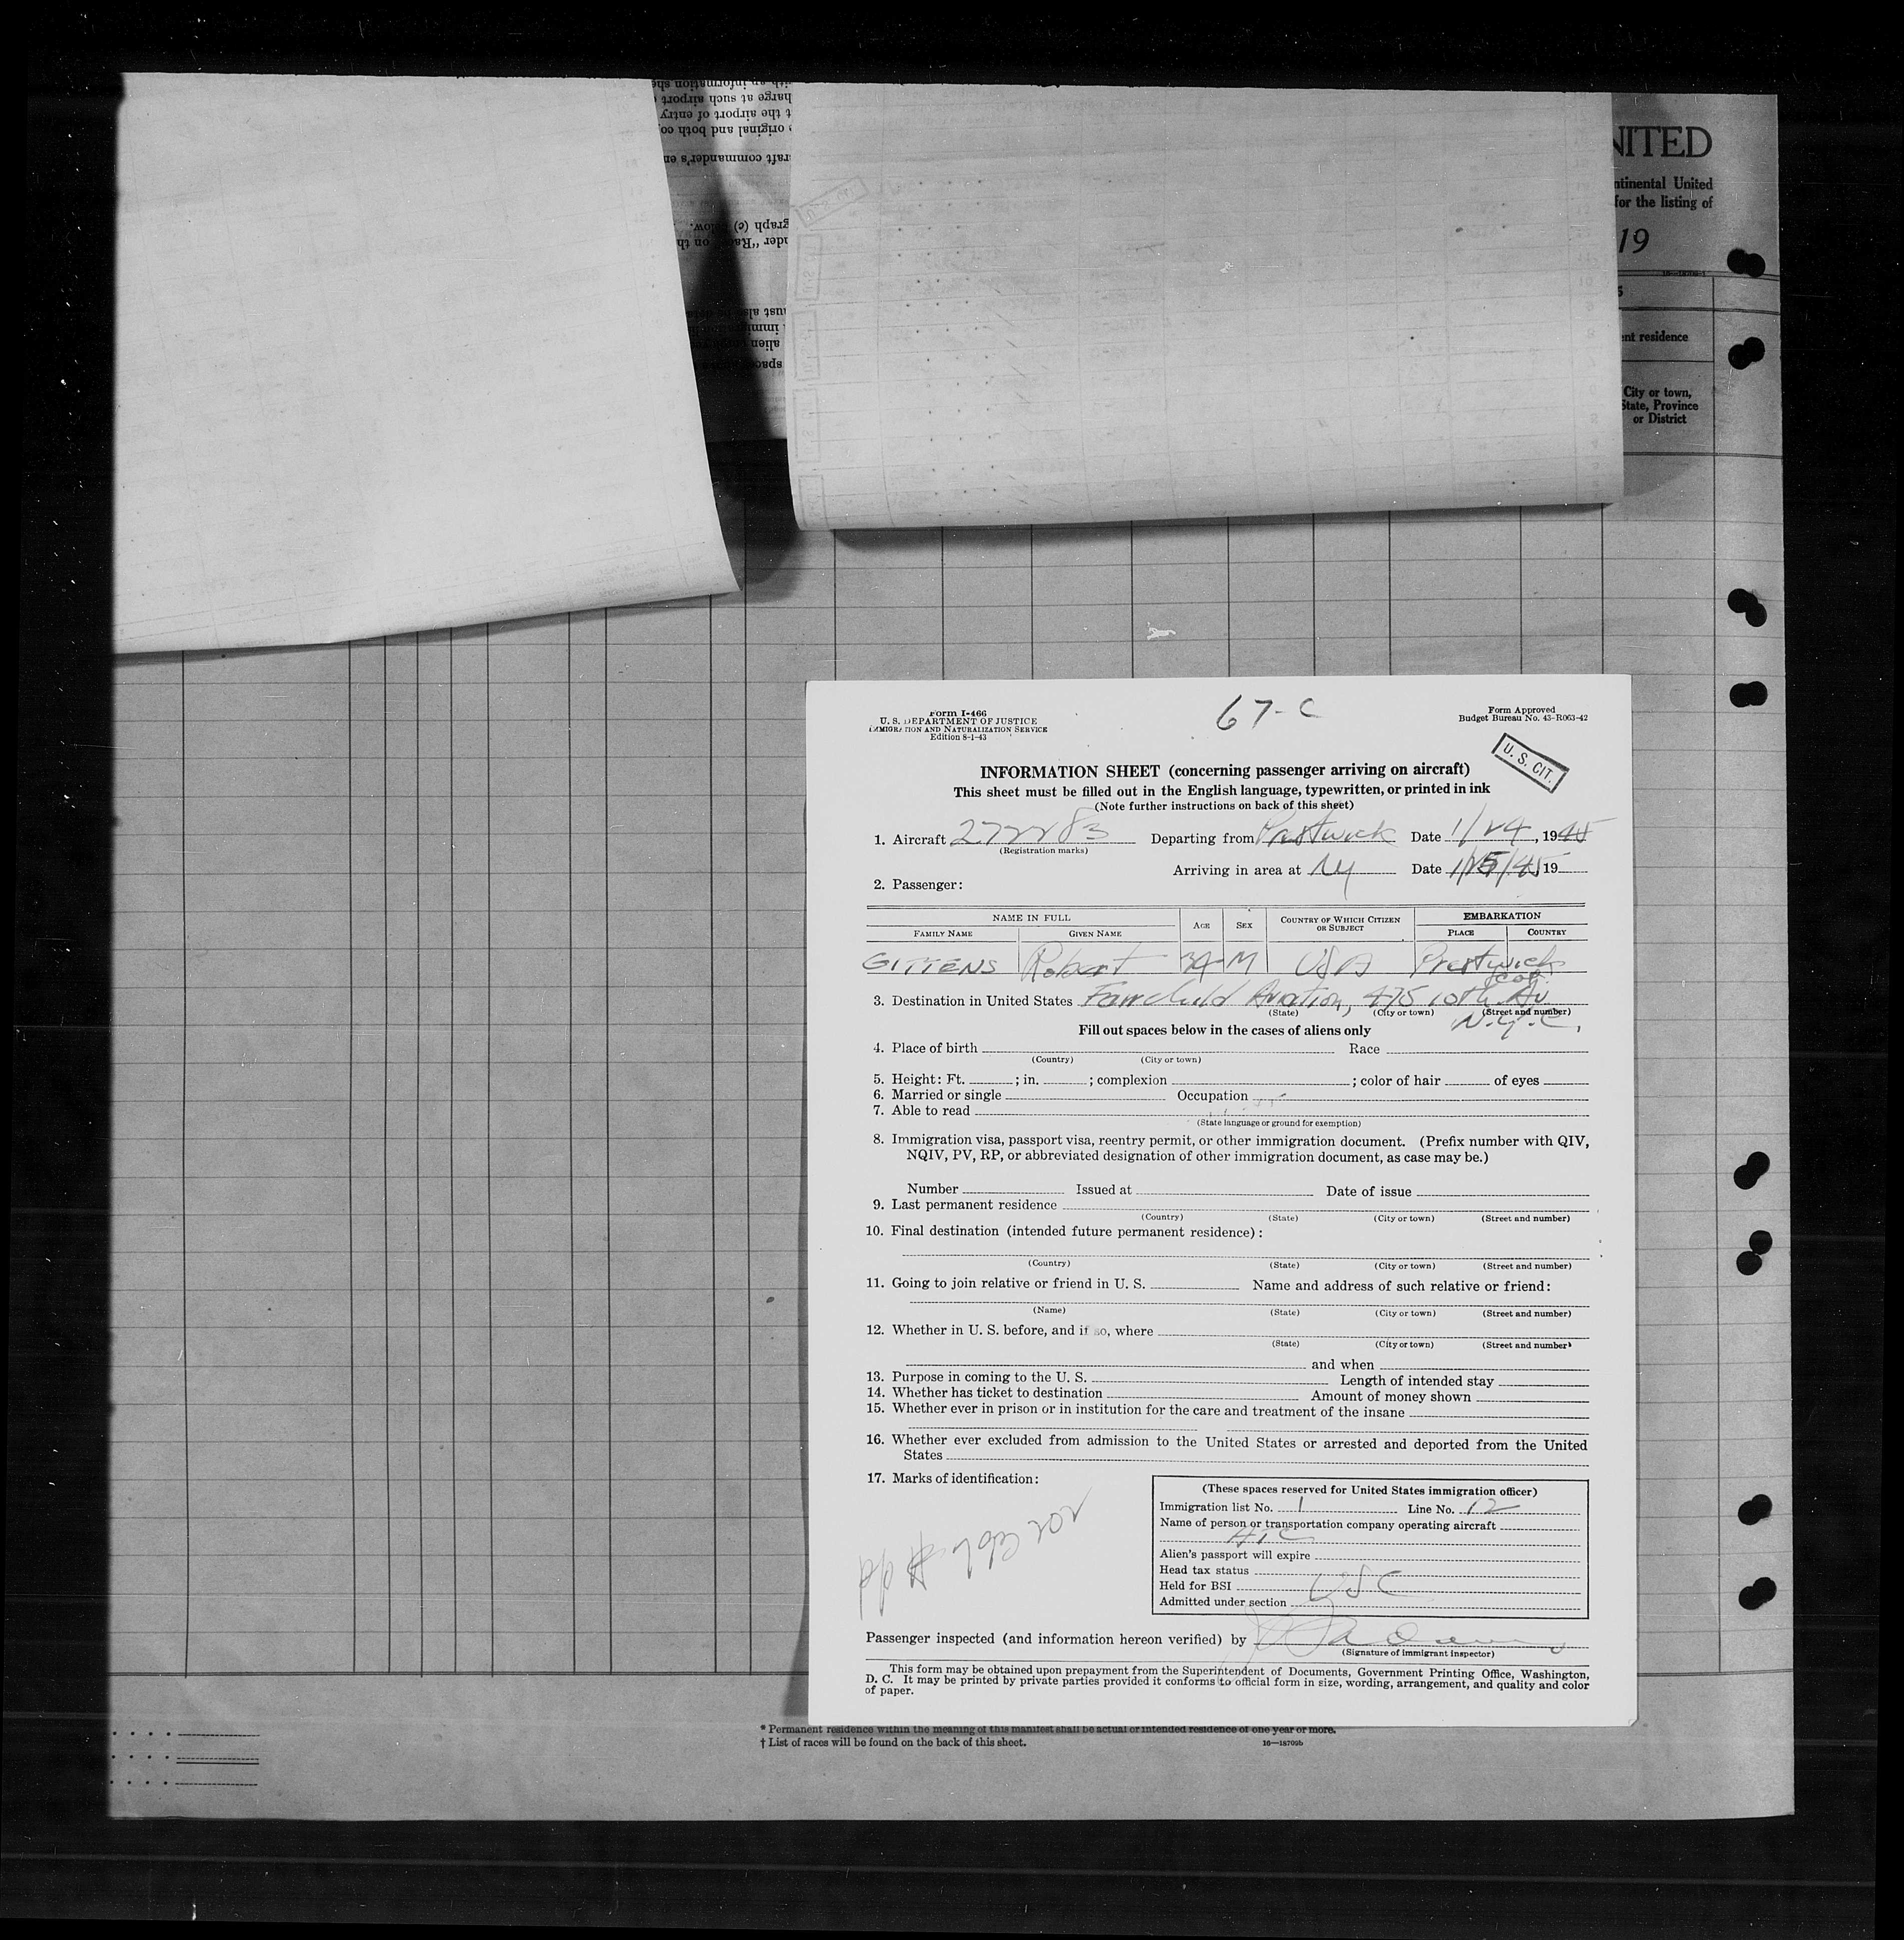 NITED
ntinental United
for the listing of
19
nt residence
City or town,
State, Province
or District
Form I-466
U. S. DEPARTMENT OF JUSTICE
IMMIGRATION AND NATURALIZATION SERVICE
Edition 8-1-43
67-C
Form Approved
Budget Bureau No. 43-R063-42
U. S. CIT.
INFORMATION SHEET (concerning passenger arriving on aircraft)
This sheet must be filled out in the English language, typewritten, or printed in ink
(Note further instructions on back of this sheet)
1. Aircraft 272283 Departing from Prestwick Date 1/24, 1945
(Registration marks)
Arriving in area at NY Date 1/25/45 19
2. Passenger:
NAME IN FULL AGE SEX COUNTRY OF WHICH CITIZEN OR SUBJECT EMBARKATION
FAMILY NAME GIVEN NAME PLACE COUNTRY
GITTENS Robert M USA Prestwick
Scot.
3. Destination in United States Fairchild Aviation, 475 10th Av
(State) (City or town) (Street and number)
N.Y.C.
Fill out spaces below in the cases of aliens only
4. Place of birth Race
(Country) (City or town)
5. Height: Ft. ; in. ; complexion ; color of hair of eyes
6. Married or single Occupation
7. Able to read
(State language or ground for exemption)
8. Immigration visa, passport visa, reentry permit, or other immigration document. (Prefix number with QIV,
NQIV, PV, RP, or abbreviated designation of other immigration document, as case may be.)
Number Issued at Date of issue
9. Last permanent residence
(Country) (State) (City or town) (Street and number)
10. Final destination (intended future permanent residence):
(Country) (State) (City or town) (Street and number)
11. Going to join relative or friend in U. S. Name and address of such relative or friend:
(Name) (State) (City or town) (Street and number)
12. Whether in U. S. before, and if so, where
(State) (City or town) (Street and number)
and when
13. Purpose in coming to the U. S. Length of intended stay
14. Whether has ticket to destination Amount of money shown
15. Whether ever in prison or in institution for the care and treatment of the insane
16. Whether ever excluded from admission to the United States or arrested and deported from the United
States
17. Marks of identification:
(These spaces reserved for United States immigration officer)
Immigration list No. 1 Line No. 12
Name of person or transportation company operating aircraft
ATC
Alien's passport will expire
Head tax status
Held for BSI USC
Admitted under section
Passenger inspected (and information hereon verified) by
(Signature of immigrant inspector)
This form may be obtained upon prepayment from the Superintendent of Documents, Government Printing Office, Washington,
D. C. It may be printed by private parties provided it conforms to official form in size, wording, arrangement, and quality and color
of paper.
* Permanent residence within the meaning of this manifest shall be actual or intended residence of one year or more.
† List of races will be found on the back of this sheet.
16—18709b